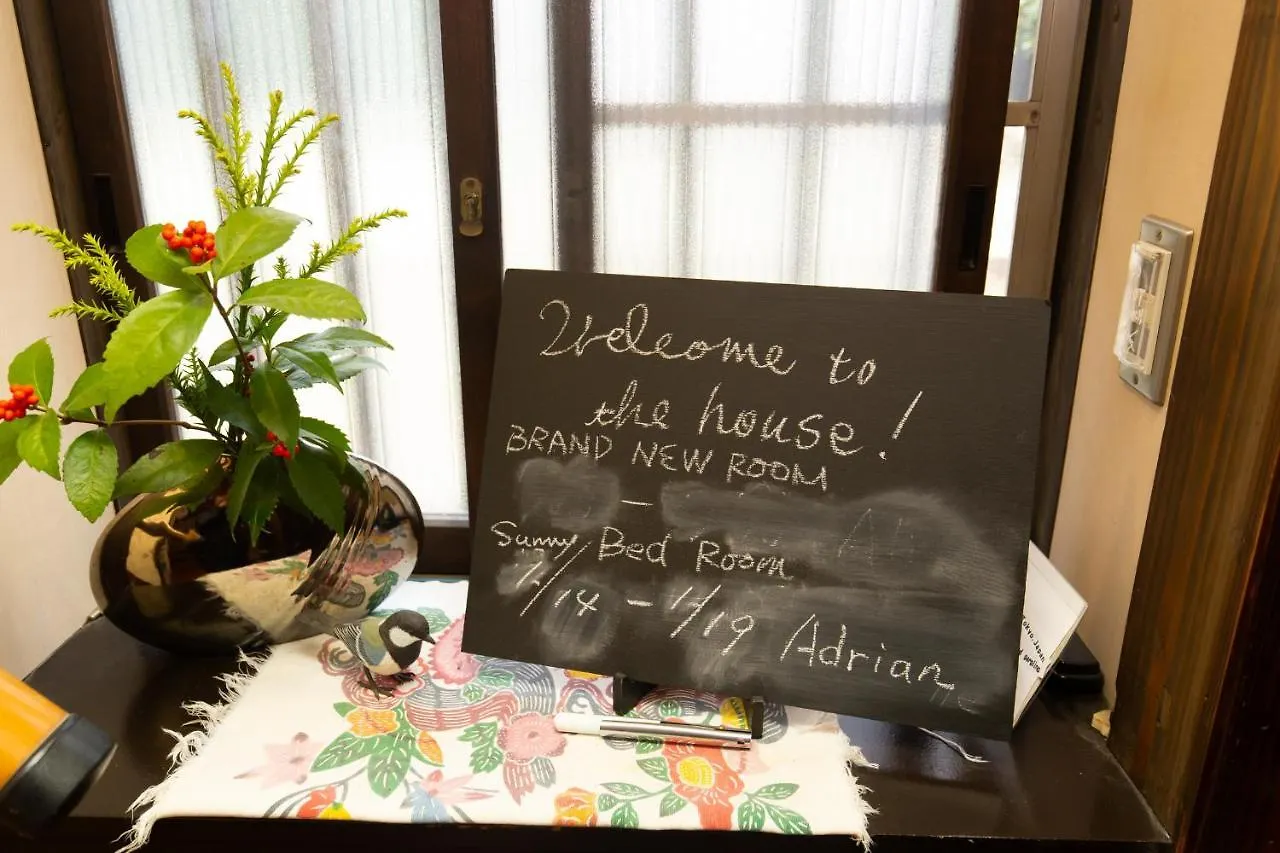 Welcome to
the house!
BRAND NEW ROOM
–
Sunny Bed Room
11/14 – 11/19 Adrian
Tokyo.Japan